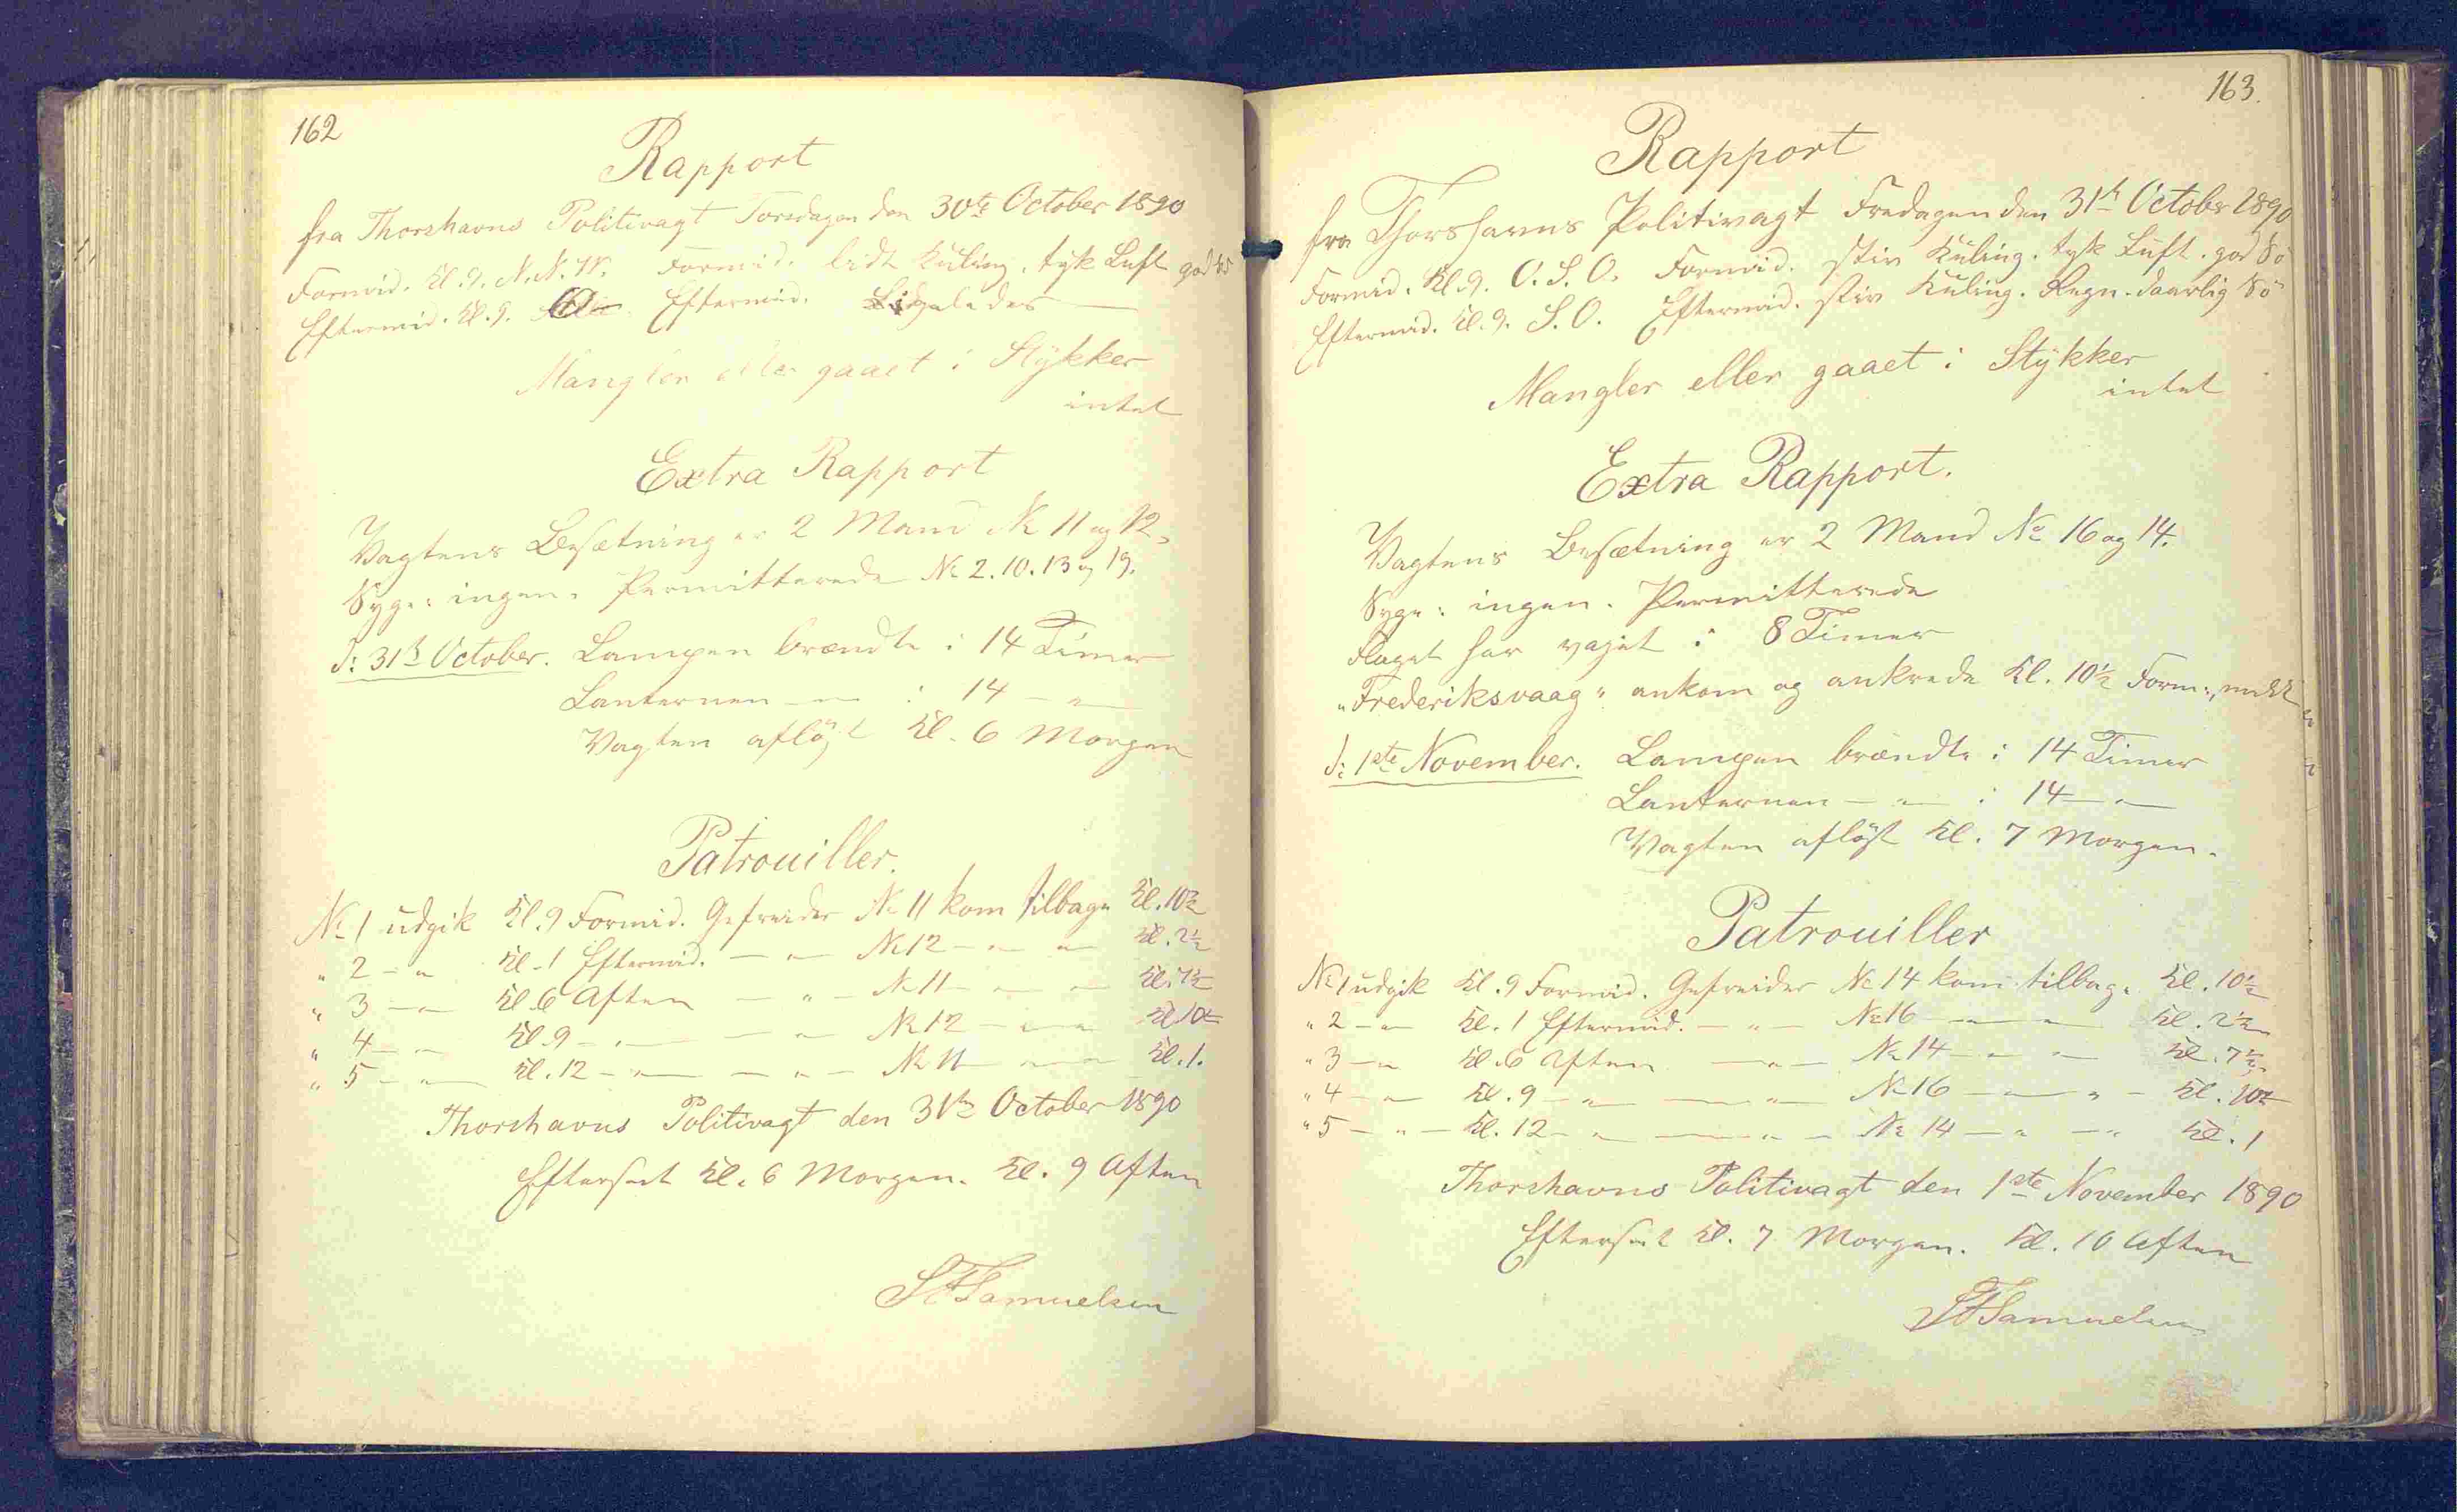 162
Rapport
fra Thorshavns Politivagt Torsdagen den 30te October 1890
Formid. Kl. 9. N.N.W. Formid. lidt Kuling. tyk Luft god Sö
Eftermid. Kl. 9. Eftermid. Ligeledes
Mangler eller gaaet i Stÿkker
intet
Extra Rapport
Vagtens Besætning er 2 Mand No 11 og 12.
Syge: ingen. Permitterede No 2. 10. 13 og 19.
d: 31te October. Lampen brændte i 14 Timer
Lanternen — " — i 14 — " —
Vagten aflöst Kl. 6 Morgen
Patrouiller.
No 1 udgik Kl. 9 Formid. Gefreider No 11 kom tilbage Kl. 10½
" 2 — " Kl. 1 Eftermid. — " — No 12 — " — " — Kl. 2½
" 3 — " — Kl. 6 Aften — " — No 11 — " — " — Kl. 7½
" 4 — " — Kl. 9 — " — — " — No 12 — " — " Kl. 10½
" 5 — " — Kl. 12 — " — — " — No 11 — " — " — Kl. 1.
Thorshavns Politivagt den 31te October 1890
Efterseet Kl. 6 Morgen. Kl. 9 Aften
Samuelsen
163.
Rapport
fra Thorshavns Politivagt Fredagen den 31te October 1890
Formid. Kl. 9. O.S.O. Formid. stiv Kuling. tyk Luft. god Sö
Eftermid. Kl. 9. S.O. Eftermid. stiv Kuling. Regn. daarlig Sö
Mangler eller gaaet i Stÿkker
intet
Extra Rapport.
Vagtens Besætning er 2 Mand No 16 og 14.
Syge: ingen. Permitterede
Flaget har vajet i 8 Timer
"Frederiksvaag" ankom og ankrede Kl. 10½ Form:
d: 1ste November. Lampen brændte i 14 Timer
Lanternen — " — i 14 — " —
Vagten aflöst Kl. 7 Morgen.
Patrouiller
No 1 udgik Kl. 9 Formid. Gefreider No 14 kom tilbage Kl. 10½
" 2 — " — Kl. 1 Eftermid. — " — No 16 — " — " — Kl. 2½
" 3 — " Kl. 6 Aften — " — No 14 — " — " — Kl. 7½
" 4 — " — Kl. 9 — " — — " — No 16 — " — " — Kl. 10½
" 5 — " — Kl. 12 — " — — " — No 14 — " — " Kl. 1
Thorshavns Politivagt den 1ste November 1890
Efterseet Kl. 7 Morgen. Kl. 10 Aften
Samuelsen